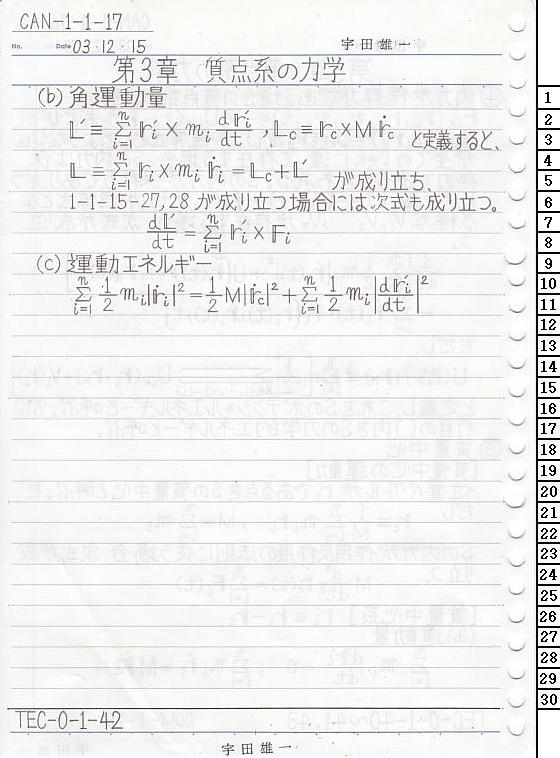 CAN-1-1-17
No. Date 03・12・15 宇田雄一
第3章 質点系の力学
(b) 角運動量
𝕃′ ≡ Σ_{i=1}^{n} 𝕣′ᵢ × mᵢ d𝕣′ᵢ/dt , 𝕃c ≡ 𝕣c × M 𝕣̇c と定義すると、
𝕃 ≡ Σ_{i=1}^{n} 𝕣ᵢ × mᵢ 𝕣̇ᵢ = 𝕃c + 𝕃′ が成り立ち、
1-1-15-27,28 が成り立つ場合には次式も成り立つ。
d𝕃′/dt = Σ_{i=1}^{n} 𝕣′ᵢ × 𝔽ᵢ
(c) 運動エネルギー
Σ_{i=1}^{n} 1/2 mᵢ|𝕣̇ᵢ|² = 1/2 M|𝕣̇c|² + Σ_{i=1}^{n} 1/2 mᵢ|d𝕣′ᵢ/dt|²
TEC-0-1-42
宇田雄一
1
2
3
4
5
6
7
8
9
10
11
12
13
14
15
16
17
18
19
20
21
22
23
24
25
26
27
28
29
30